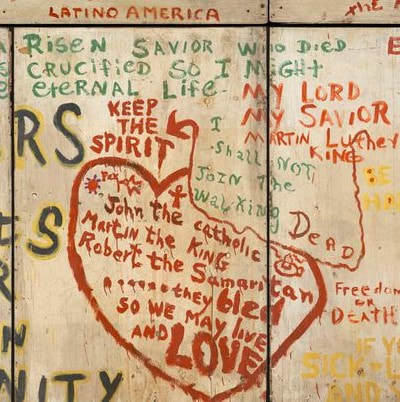 LATINO AMERICA
RISEN SAVIOR WHO DIED
CRUCIFIED SO I MIGHT
ETERNAL LIFE
MY LORD
MY SAVIOR
MARTIN LUTHEY
KING
KEEP
THE
SPIRIT
I
SHALL NOT
JOIN THE
WALKING
DEAD
RS
BE
John the catholic
Martin the KING
Robert the Samaritan
they bled
SO WE MAY LIVE
AND LOVE
Freedom
OR
DEATH
IF YO
SICK-L
AND S
NITY